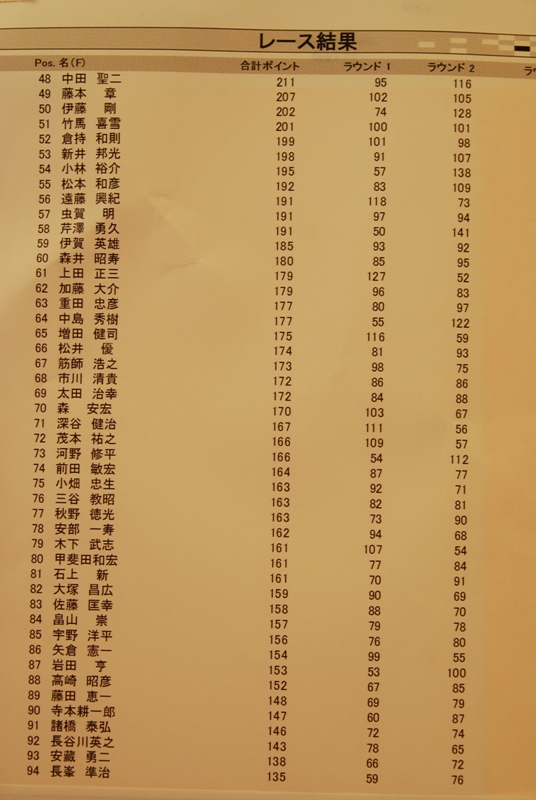 レース結果
Pos. 名(F) 合計ポイント ラウンド 1 ラウンド 2
48 中田 聖二 211 95 116
49 藤本 章 207 102 105
50 伊藤 剛 202 74 128
51 竹馬 喜雪 201 100 101
52 倉持 和則 199 101 98
53 新井 邦光 198 91 107
54 小林 裕介 195 57 138
55 松本 和彦 192 83 109
56 遠藤 興紀 191 118 73
57 虫賀 明 191 97 94
58 芹澤 勇久 191 50 141
59 伊賀 英雄 185 93 92
60 森井 昭寿 180 85 95
61 上田 正三 179 127 52
62 加藤 大介 179 96 83
63 重田 忠彦 177 80 97
64 中島 秀樹 177 55 122
65 増田 健司 175 116 59
66 松井 優 174 81 93
67 筋師 浩之 173 98 75
68 市川 清貴 172 86 86
69 太田 治幸 172 84 88
70 森 安宏 170 103 67
71 深谷 健治 167 111 56
72 茂本 祐之 166 109 57
73 河野 修平 166 54 112
74 前田 敏宏 164 87 77
75 小畑 忠生 163 92 71
76 三谷 教昭 163 82 81
77 秋野 徳光 163 73 90
78 安部 一寿 162 94 68
79 木下 武志 161 107 54
80 甲斐田和宏 161 77 84
81 石上 新 161 70 91
82 大塚 昌広 159 90 69
83 佐藤 匡幸 158 88 70
84 畠山 崇 157 79 78
85 宇野 洋平 156 76 80
86 矢倉 憲一 154 99 55
87 岩田 亨 153 53 100
88 高崎 昭彦 152 67 85
89 藤田 恵一 148 69 79
90 寺本耕一郎 147 60 87
91 諸橋 泰弘 146 72 74
92 長谷川英之 143 78 65
93 安蔵 勇二 138 66 72
94 長峯 準治 135 59 76